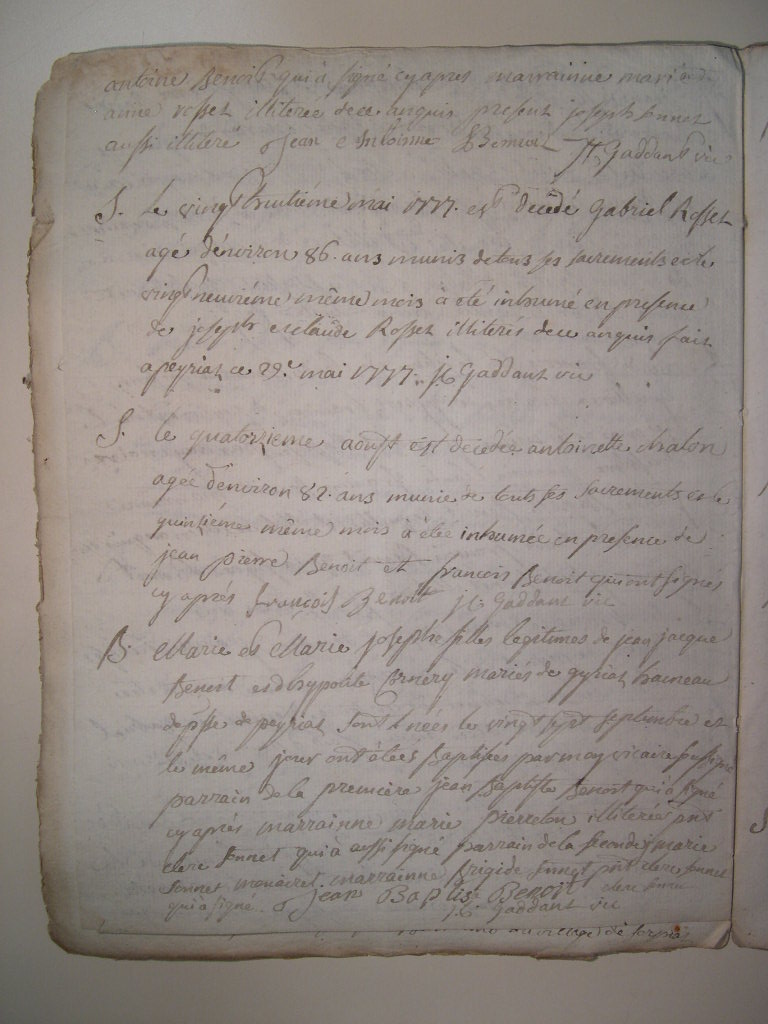 antoine Benoit qui à signé cy apres marrainne mari
anne rosset illiterée de ce anquis present joseph sonnet
aussi illiteré Jean e Antoinne Benoit JC Gaddant vic
S. le vingt huitiéme mai 1777. est decédé Gabriel Rosset
agé d'environ 86. ans munis de tous ses sacrements et le
vingt neuviéme même mois à été inhumé en presence
de joseph et claude Rosset illiterés de ce anquis fait
a peyriat ce 29.e mai 1777. JC Gaddant vic
S. le quatorzieme aoust est decedée antoinette chalon
agée d'environ 82. ans munie de touts ses sacrements et le
quinsiéme même mois à étée inhumée en presence de
jean pierre Benoit et francois Benoit qui ont signés
cy aprés françois Benoit JC Gaddant vic
B. Marie et Marie josephe filles legitimes de jean jacque
Benoit et d'hypolite mariés de gyriat hameau
de psse de peyriat sont nées le vingt sept septembre et
le même jour ont étées Baptisées par moy vicaire sussigné
parrain de la premiére jean Baptiste Benoit qui à signé
cy aprés marrainne marie pierreton illiterée
clere sonnet qui à aussi signé parrain de la seconde marie
sonnet marrainne Brigide sonnet clere sonnet
qui à signé. Jean Baptiste Benoit
JC Gaddant vic